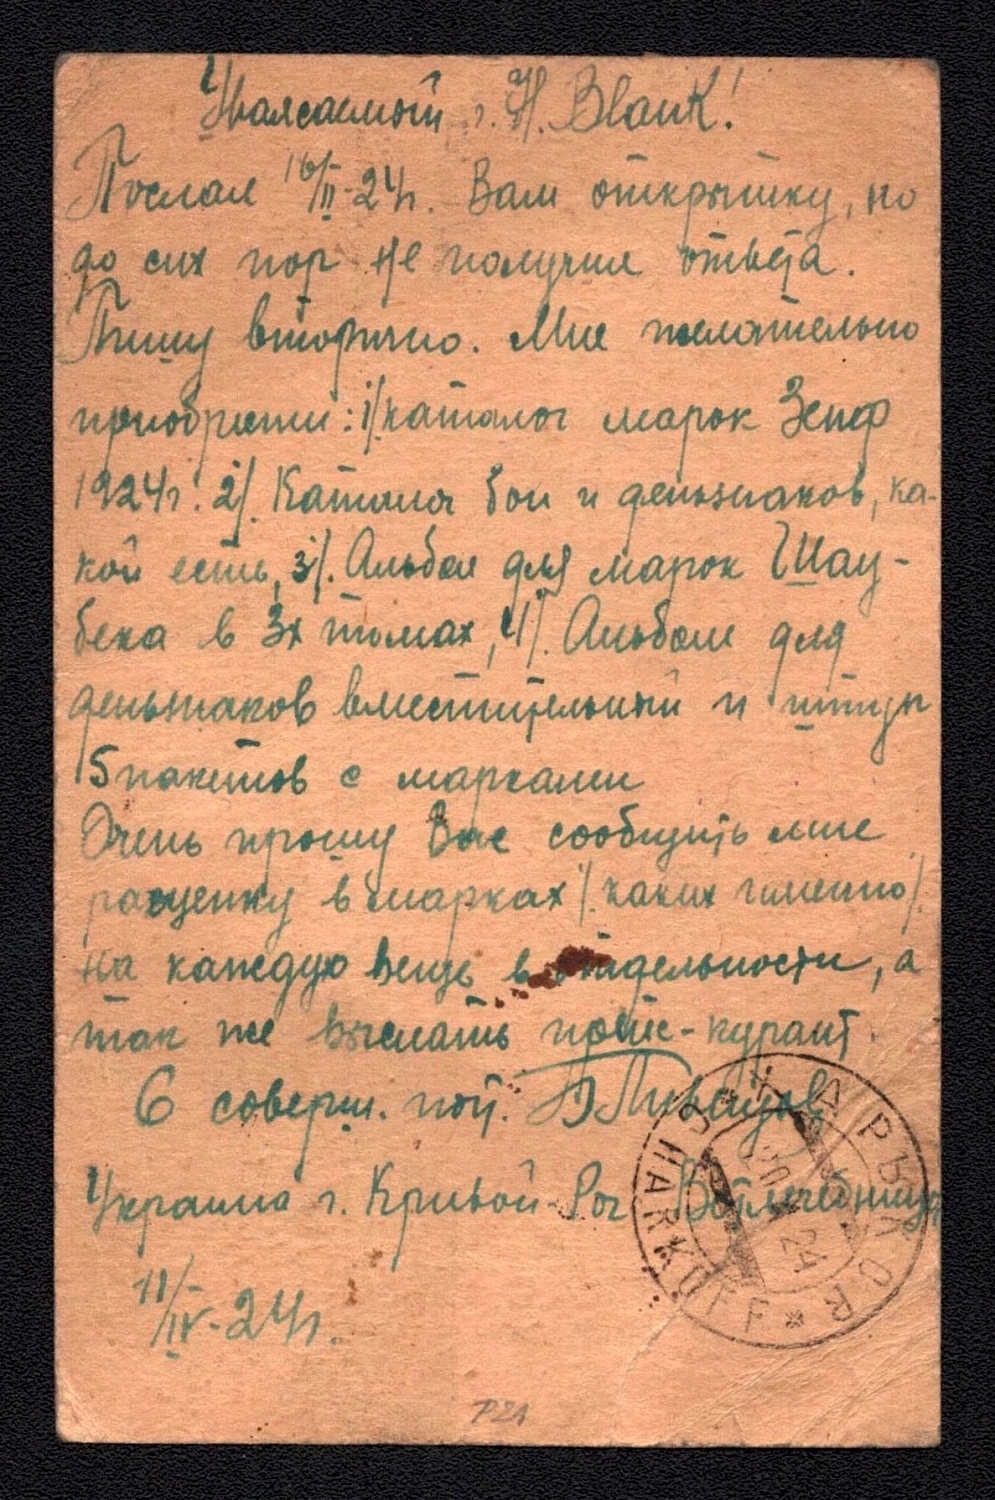 Уважаемый г. H. Blank!
Послал 16/II-24г. Вам открытку, но
до сих пор не получил отвѣта.
Пишу вторично. Мне желательно
приобрести: 1/. каталог марок Зенф
1924г. 2/. Каталог бон и деньзнаков, ка-
кой есть, 3/. Альбом для марок Шау-
бека в 3х томах, 4/. Альбом для
деньзнаков вместительный и
15 пакетов с марками
Очень прошу Вас сообщить мне
расценку в марках /. каких именно/.
на каждую вещь в отдельности, а
так же выслать прейс-курант.
С соверш. поч.
Украина г. Кривой-Рог Ветлечебница
11/IV-24г.
ХАРЬКОВ
CHARKOFF
20 4 24
P21